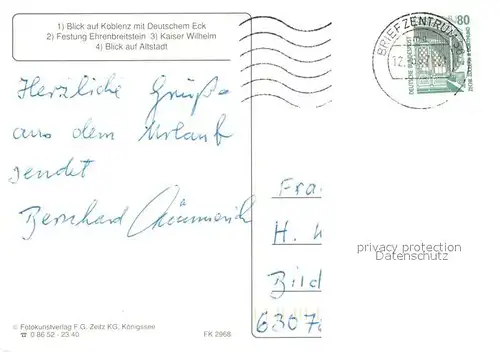 1) Blick auf Koblenz mit Deutschem Eck
2) Festung Ehrenbreitstein 3) Kaiser Wilhelm
4) Blick auf Altstadt
BRIEFZENTRUM 56
80
DEUTSCHE BUNDESPOST
Herzliche Grüße
aus dem Urlaub
sendet
Bernhard
Fra
H.
Bild
6307
privacy protection
Datenschutz
© Fotokunstverlag F.G. Zeitz KG, Königssee
☎ 0 86 52 - 23 40
FK 2968